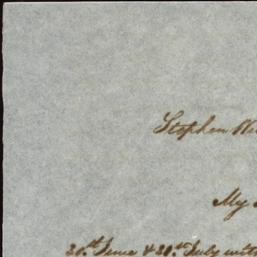 Stephen
My
20th June & 21st July with